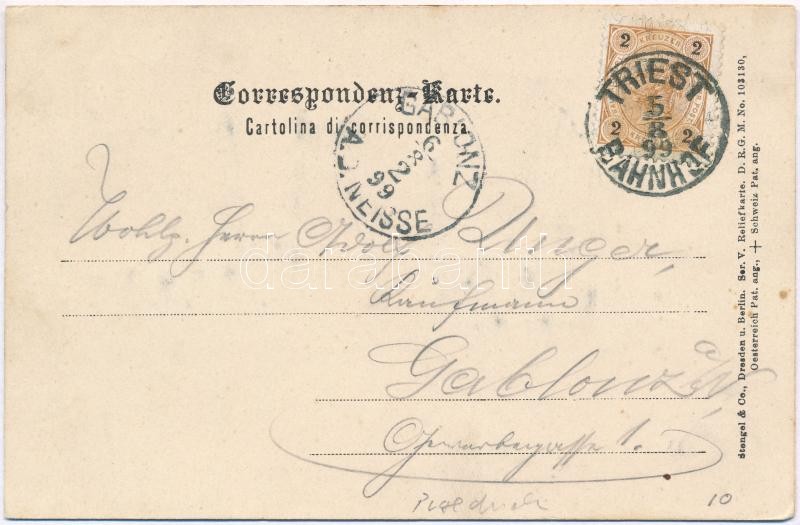 2 KREUZER 2
2 2
TRIEST
5/8
99
BAHNHOF
Correspondenz-Karte.
Cartolina di corrispondenza
GABLONZ
6/8
2
99
A.D. NEISSE
Wohlg. Herrn Adolf Unger,
Kaufmann
Gablonz a/N
1.
10
Stengel & Co., Dresden u. Berlin. Ser. V. Reliefkarte. D. R. G. M. No. 103130,
Oesterreich Pat. ang., + Schweiz Pat. ang.
darabanth